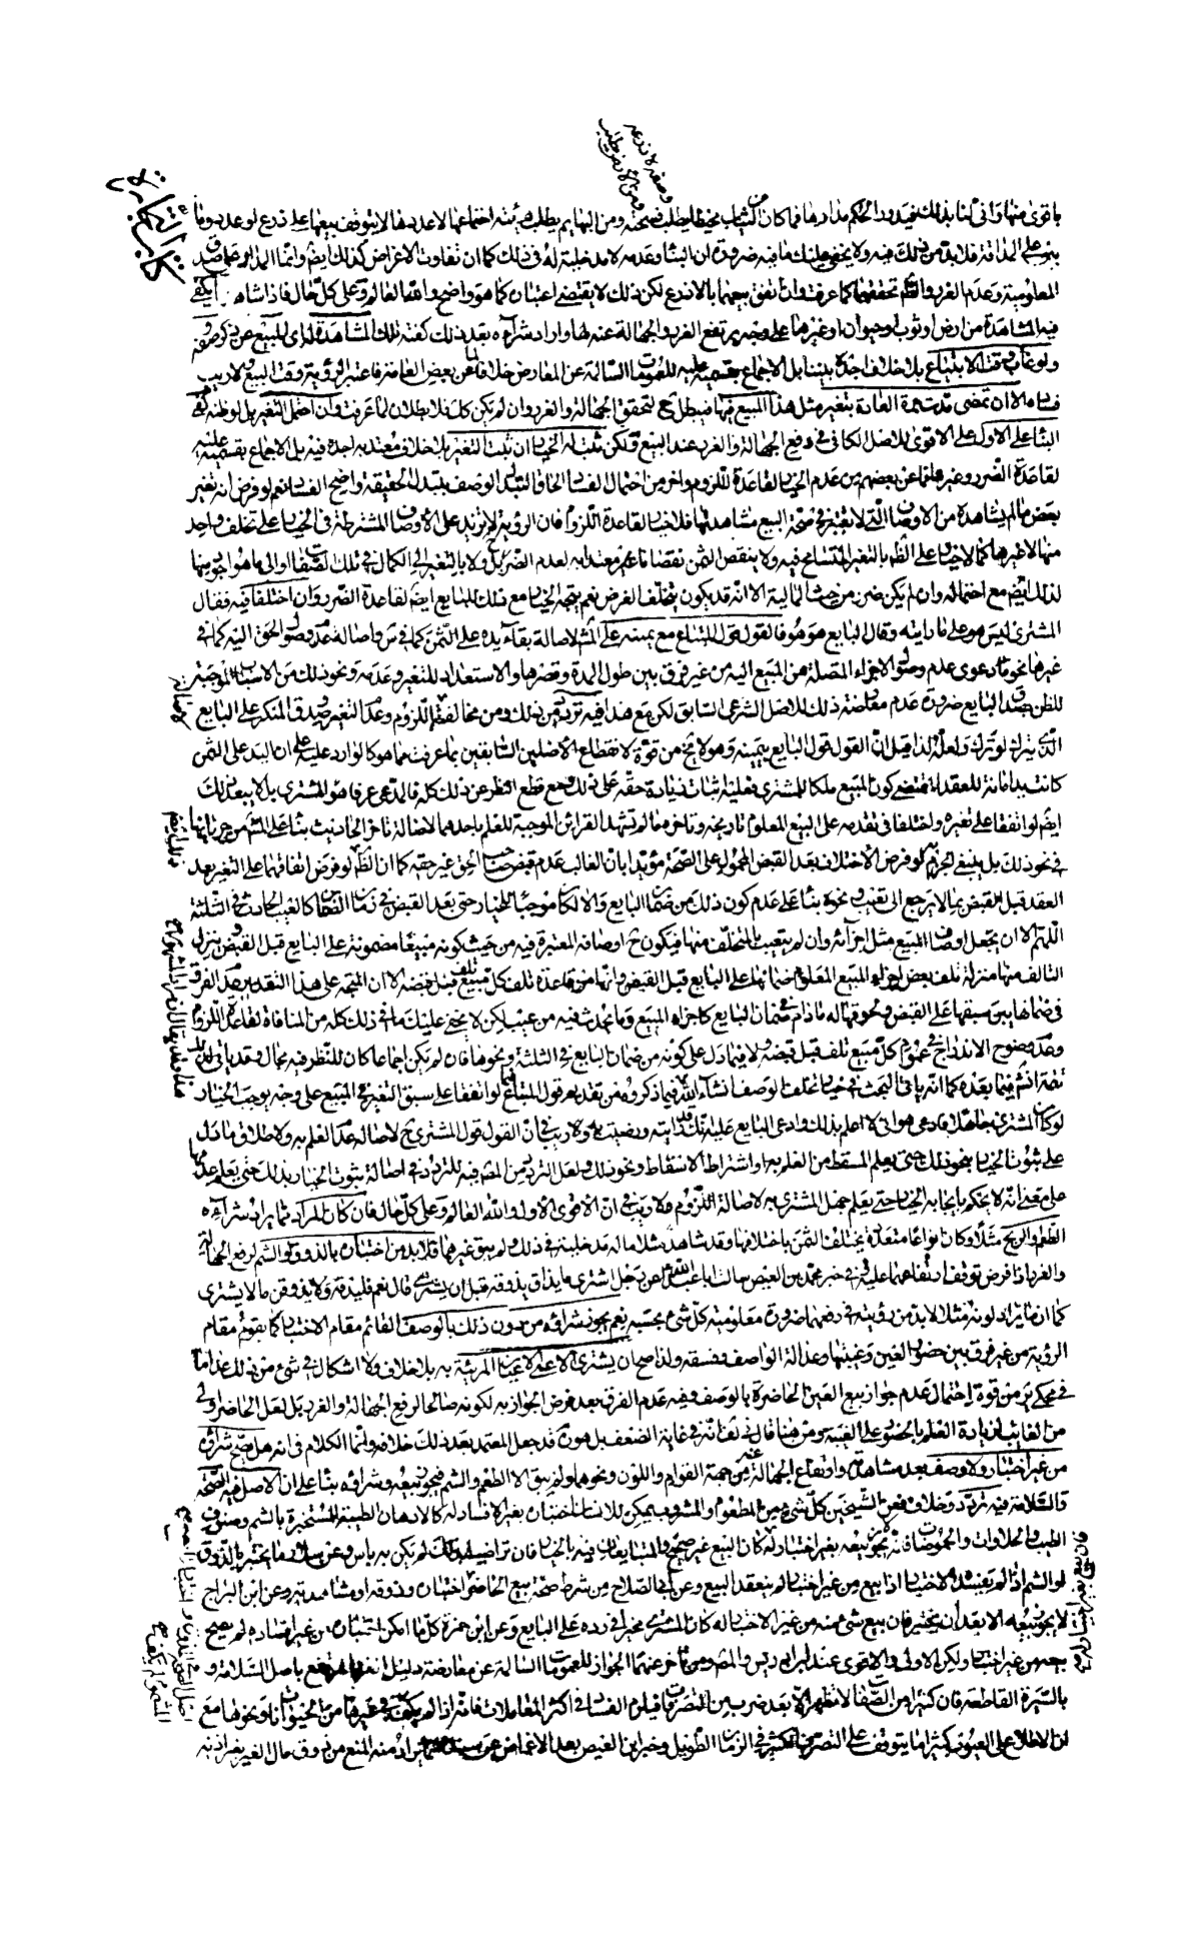 كتاب التجارة
باقوى منهما وانى لنا بذلك فيدور الحكم مدارها فما كان من الثياب مخيطا يطلب صحته ومن البهائم يطلب اجتماعها لا عددها لا يتوقف بيعهما على ذرع او عدد وما
يبنى على المداقة فلا بد من ذلك فيه ولا يخفى عليك ما فيه ضرورة ان البناء وعدمه لا مدخلية له فى ذلك كما ان تفاوت الاغراض كذلك ايضا وانما المدار على صدق
المعلومية وعدم الغرر والظاهر تحققهما كما عرفت وان اتفق بيعهما بالاذرع لكن ذلك لا يقتضى اعتباره كما هو واضح والله العالم وعلى كل حال فاذا شاهد ما يكتفى
فيه المشاهدة من ارض او ثوب او حيوان او غيرها على وجه يرتفع الغرر والجهالة عنه بها واراد شراءه بعد ذلك كفته تلك المشاهدة لذلك المبيع عن ذكر وصفه
ولو غاب وقت الابتياع بلا خلاف اجده بيننا بل الاجماع بقسميه عليه للعمومات السالمة عن المعارض خلافا لما عن بعض العامة فاعتبر الرؤية وقت البيع ولا ريب
فى فساده الا ان تمضى مدة جرت العادة بتغير مثل هذا المبيع فيها فيبطل ح لتحقق الجهالة والغرر وان لم يكن كك فلا بطلان لما عرفت وان احتمل التغير بل لو ظنه كفى
البناء على الاول على الاقوى للاصل الكافى فى رفع الجهالة والغرر عند البيع ولكن يثبت له الخيار ان ثبت التغير بلا خلاف معتد به اجده فيه بل الاجماع بقسميه عليه
لقاعدة الضرر وغيرها فما عن بعضهم من عدم الخيار لقاعدة اللزوم واخر من احتمال الفساد الحاقا لتبدل الوصف بتبدل الحقيقة واضح الفساد نعم لو فرض انه تغير
بعض ما لم يشاهده من الاوصاف التى لا يعتبر فى صحة البيع مشاهدتها فلا خيار لقاعدة اللزوم فان الرؤية لا تزيد على الاوصاف المشترطة فى الخيار على تخلف واحد
منها لا غيرها كما لا خيار على الظاهر بالتغير المتسامح فيه ولا ينقص الثمن نقصانا غير معتد به لعدم الضرر بكل ولا بالتغير الى الكمال فى تلك الصفات او الى ما هو اجود منها
لذلك ايضا مع احتماله وان لم يكن ضرر من حيث المالية الا انه قد يكون بتخلف الغرض نعم يتجه الخيار مع ذلك للبايع ايضا لقاعدة الضرر وان اختلفا فيه فقال
المشترى ليس هو على ما رايته وقال البايع هو هو فالقول قول المبتاع مع يمينه على المشهور لاصالة بقاء يده على الثمن كما فى س واصالة عدم وصول الحق اليه كما فى
غيرها نحو ما لو ادعى عدم وصول الاجزاء المتصلة من المبيع اليه من غير فرق بين طول المدة وقصرها والاستعداد للتغير وعدمه ونحو ذلك من الاسباب الموجبة
للظن بصدق البايع ضرورة عدم معارضة ذلك للاصل الشرعى السابق لكن مع هذا فيه تردد من ذلك ومن مخالفته لاصالة اللزوم وعدم التغير وصدق المنكر على البايع
الذى يترك لو ترك ولعله لذا قيل ان القول قول البايع بيمينه وهو لا يخ من قوة لانقطاع الاصلين السابقين بما عرفت مما هو كالوارد عليهما على ان اليد على الثمن
كانت يد امانة للعقد المقتضى كون المبيع ملكا للمشترى فعليه اثبات زيادة حقه على ذلك مع قطع النظر عن ذلك كله فالمدعى عرفا هو المشترى بل لا يبعد ذلك
ايضا لو اتفقا على تغيره واختلفا فى تقدمه على البيع المعلوم تاريخه وتاخره ما لم تشهد القرائن الموجبة للعلم باحدهما لاصالة تاخر الحادث بناء على المشهور من جريانها
فى نحو ذلك بل ينبغى الجزم به لو فرض الاختلاف بعد القبض المحمول على الصحة مؤيدا بان الغالب عدم قبض صاحب الحق غير حقه كما ان الظاهر لو فرض اتفاقهما على التغير بعد
العقد قبل القبض بما لا يرجع الى تعيب ونحوه بناء على عدم كون ذلك من ضمان البايع والا لكان موجبا للخيار حتى بعد القبض فى زمان الخيار كالعيب الحادث فى الثلثة
اللهم الا ان يجعل اوصاف المبيع مثل اجزائه وان لم يتعيب بالمتخلف منها فيكون ح اوصافه المعتبرة فيه من حيث كونه مبيعا مضمونة على البايع قبل القبض ينزل
التالف منها منزلة تلف بعض اجزاء المبيع المعلوم ضمانها على البايع قبل القبض وانها من قاعدة تلف كل مبيع تلف قبل قبضه الا ان المتجه على هذا التقدير عدم الفرق
فى ضمانها بين سبقها على القبض ولحوقها له ما دام فى ضمان البايع كاجزاء المبيع وما يحدث فيه من عيب لكن لا يخفى عليك ما فى ذلك كله من المنافاة لقاعدة اللزوم
وعدم وضوح الاندراج فى عموم كل مبيع تلف قبل قبضه ولا فيما دل على كونه من ضمان البايع فى الثلثة ونحوها فان لم يكن اجماعا كان للنظر فيه مجال وقد ياتى لذلك
تتمة انش فيما بعد كما انه ياتى البحث فى خيار تخلف الوصف انشاء الله فيما ذكروه من تقديم قول المبتاع اما لو اتفقا على سبق التغير فى المبيع على وجه يوجب الخيار
لو كان المشترى جاهلا فادعى هو انى لا اعلم بذلك وادعى البايع عليه انك قد رايته ورضيت به فلا ريب فى ان القول قول المشترى ح لاصالة عدم العلم به ولاطلاق ما دل
على ثبوت الخيار بنحو ذلك حتى يعلم المسقط من العلم به او اشتراط الاسقاط ونحو ذلك ولعل الترديد من المصنف فيه للتردد فى اصالة ثبوت الخيار بذلك حتى يعلم عدمها
على معنى انه لا يحكم بايجابه الخيار حتى يعلم جهل المشترى به لاصالة اللزوم فلا ريب فى ان الاقوى الاول والله العالم وعلى كل حال فان كان المراد مما يراد شراءه
الطعم والريح مثلا وكان انواعا متعددة يختلف الثمن باختلافها وقد شاهد مثلا ما له مدخلية فى ذلك ولم يبق غيرهما فلا بد من اختباره بالذوق والشم لرفع الجهالة
والغرر اذا فرض توقف ارتفاعهما عليه فى خبر محمد بن العيص سالت ابا عبد الله عن رجل اشترى ما يذاق يذوقه قبل ان يشترى قال نعم فليذقه ولا يذوقن ما لا يشترى
كما ان ما يراد لونه مثلا لا بد من رؤيته فى رفعهما ضرورة معلومية كل شئ بحسبه نعم يجوز شراؤه من دون ذلك بالوصف القائم مقام الاختبار كما يقوم مقام
الرؤية من غير فرق بين حضور العين وغيبتها وعدالة الواصف وفسقه ولذا صح ان يشترى الاعمى الاعيان المرئية به بلا خلاف ولا اشكال فى شئ من ذلك عدا ما
فى محكى ير من قوة احتمال عدم جواز بيع العين الحاضرة بالوصف وفيه عدم الفرق بعد فرض الجواز به لكونه صالحا لرفع الجهالة والغرر بل لعل الحاضر اولى
من الغايب لزيادة العلم بالحضور على الغيبة ومن هنا قال فى لف انه فى غاية الضعف بل هو ره قد جعل المعتمد بعد ذلك خلافه وانما الكلام فى انه هل يصح شراؤه
من غير اختبار ولا وصف بعد مشاهدته وارتفاع الجهالة عنه من جهة القوام واللون ونحوهما ولم يبق الا الطعم والشم فيجوز بيعه وشراؤه بناء على ان الاصل فيه الصحة
والسلامة فيه تردد وخلاف فعن الشيخين كل شئ من المطعوم والمشروب يمكن للانسان اختباره بغير افساد له كالادهان الطيبة المستخبرة بالشم وصنوف
الطيب والحلاوات والحموضات فانه لا يجوز بيعه بغير اختبار له فان بيع من غير اختبار له كان البيع غير صحيح والمتبايعان فيه بالخيار فان تراضيا بذلك لم يكن به باس وعن سلار ما يختبر بالذوق
او الشم اذا لم يفسده الاختبار اذا بيع من غير اختبار لم ينعقد البيع وعن ابى الصلاح من شرط صحة بيع الحاضر اختباره وذوقه او مشاهدته وعن ابن البراج
لا يجوز بيعه الا بعد ان يختبر فان بيع شئ منه من غير الاختبار له كان المشترى مخيرا فى رده على البايع وعن ابن حمزة كل ما امكن اختباره من غير افساده لم يصح
بيعه من غير اختبار ولكن الاولى والاقوى عند ابن ادريس والمصنف ومن تاخر عنهما الجواز للعمومات السالمة عن معارضة دليل باصل السلامة و
بالسيرة القاطعة فان كثيرا من الصفات لا تظهر الا بعد ضرب من التصرف فيلزم الفساد فى اكثر المعاملات فانه اذا لم يكتف فى غيرها من الحيوانات ونحوها مع
ان الاطلاع على العيوب كثيرا ما يتوقف على التصرف الكثير فى الزمان الطويل وخبر ابن العيص بعد الاغماض عن سنده يراد منه المنع من ذوق مال الغير بغير اذنه